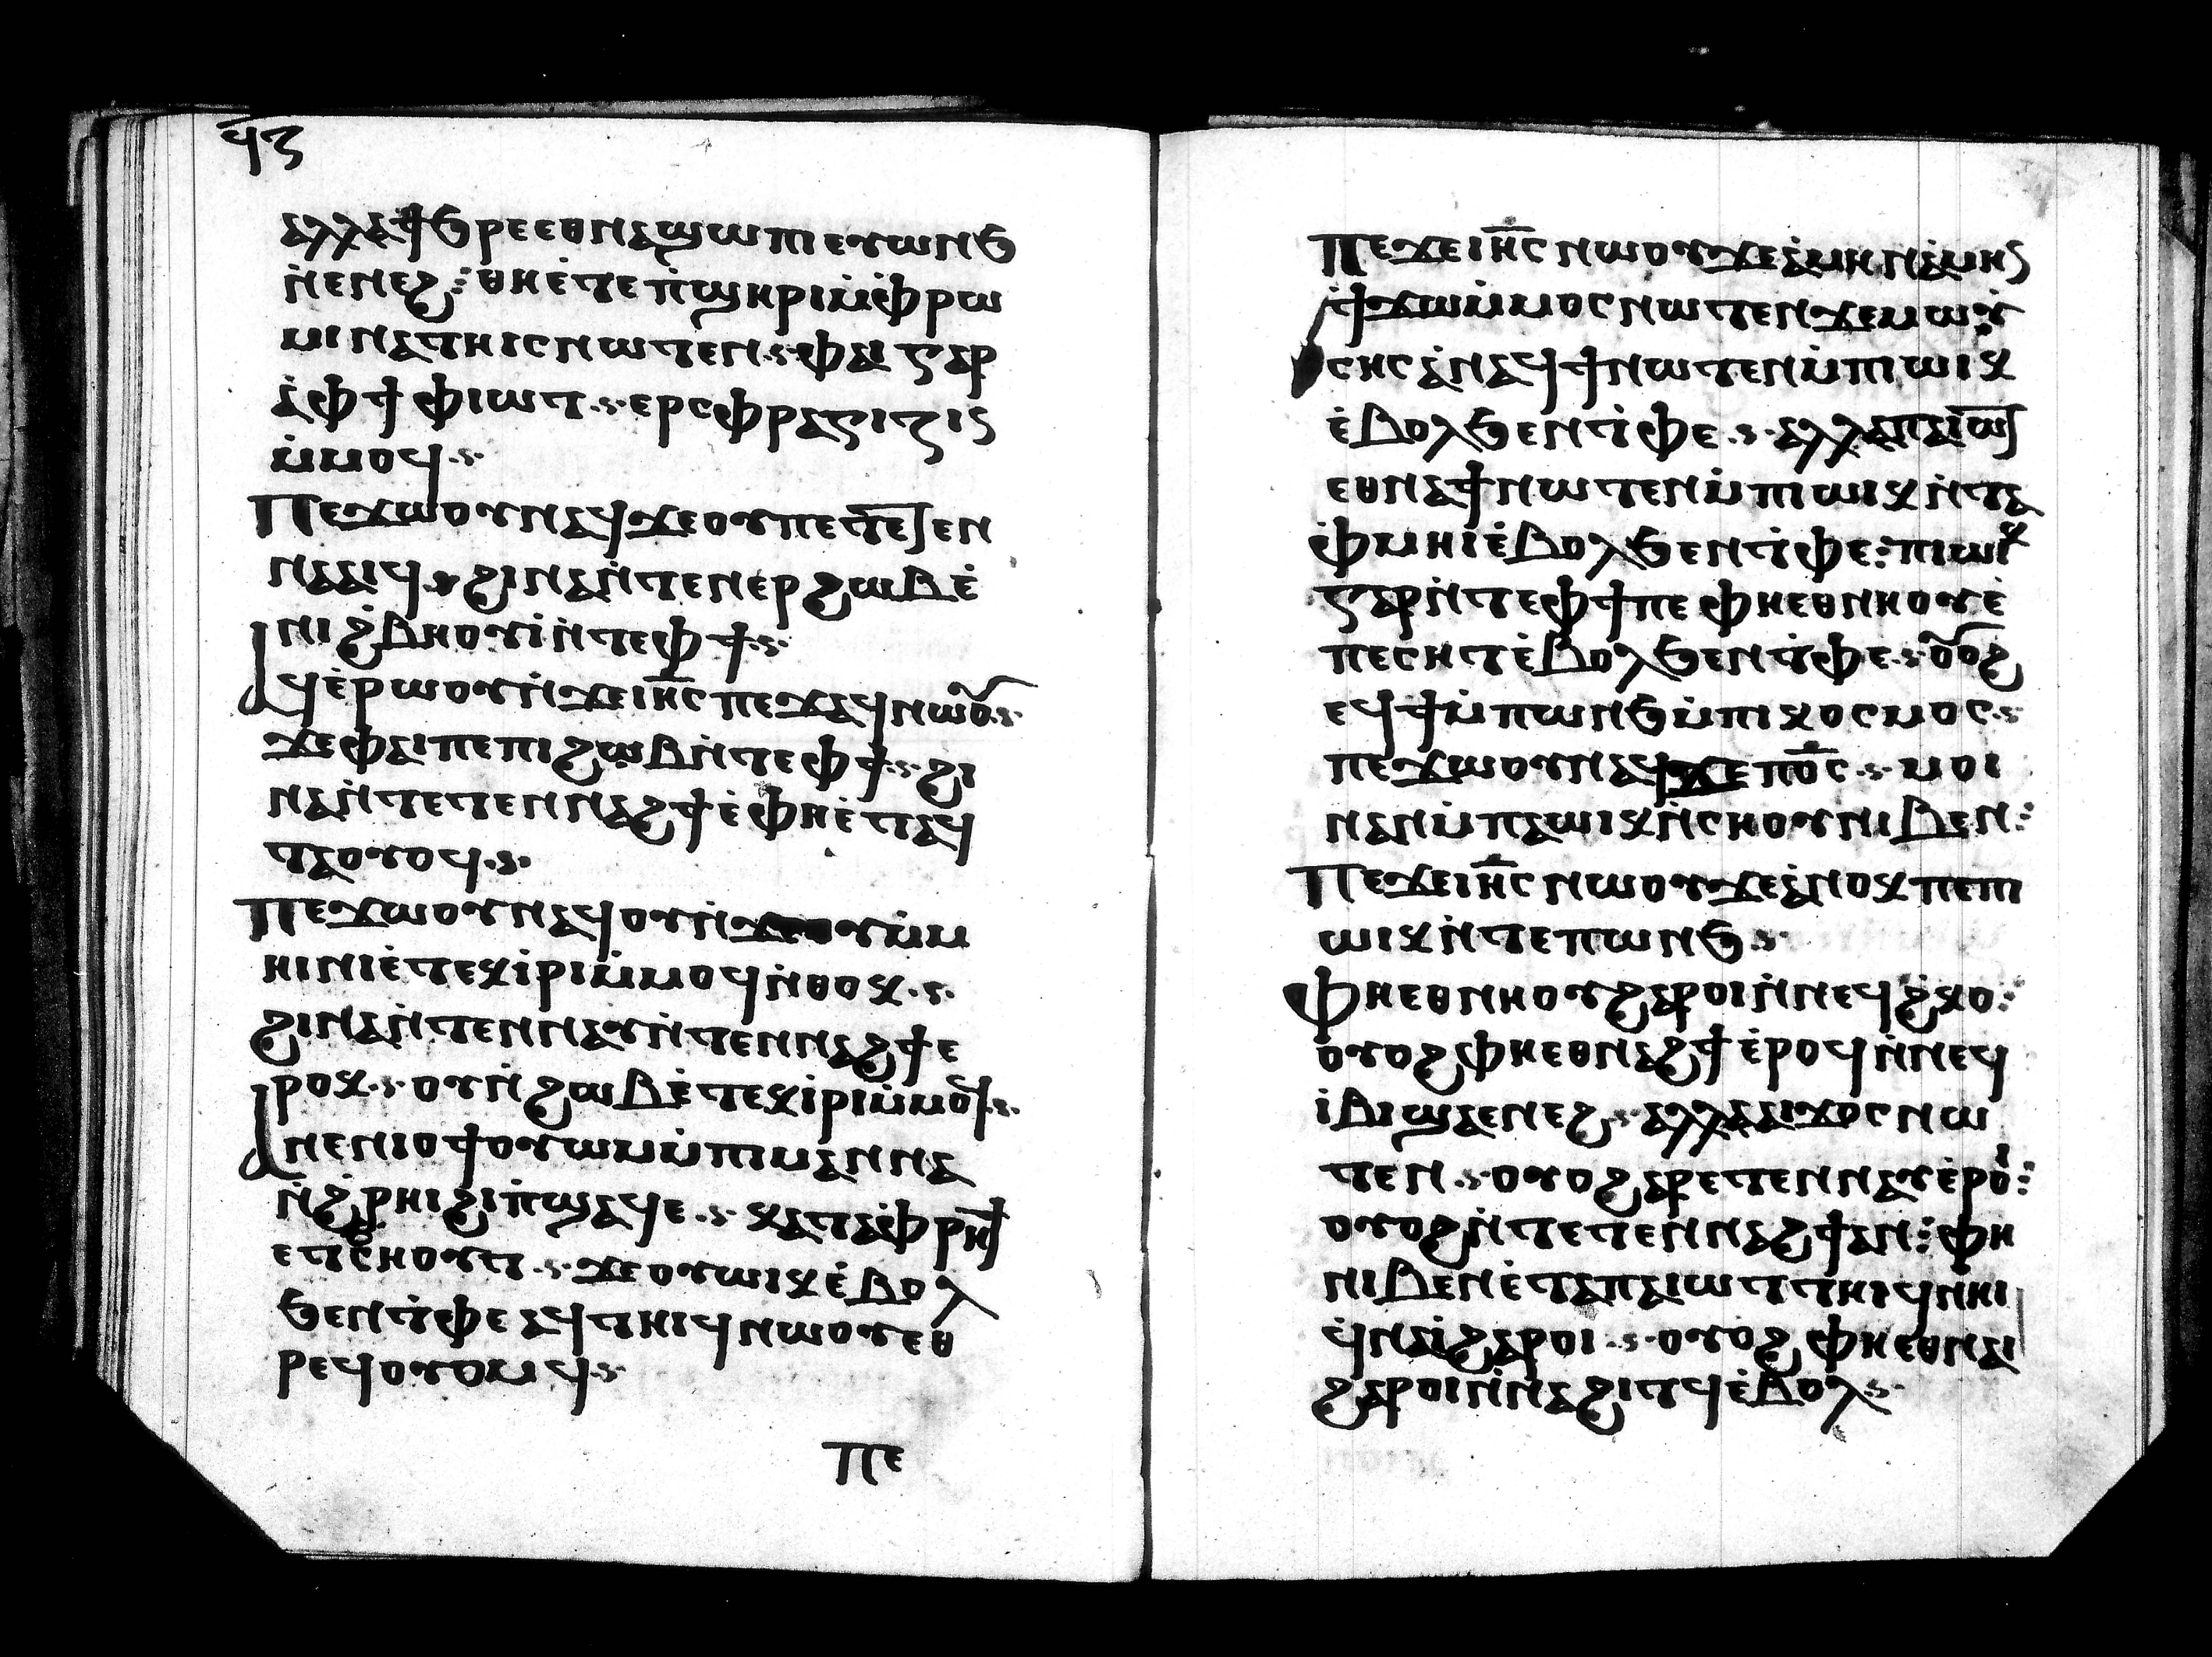 ϥⲍ
ⲁⲗⲗⲁϯϧⲣⲉⲉⲑⲛⲁϣⲱⲡⲓⲉⲩⲱⲛϧ
ⲛ̀ⲉⲛⲉϩ⁝ ⲑⲏⲉ̀ⲧⲉⲡ̀ϣⲏⲣⲓⲙ̀ⲫ̀ⲣⲱ
ⲙⲓⲛⲁⲧⲏⲓⲥⲛⲱⲧⲉⲛ·ⲫⲁⲓ ⲅⲁⲣ
ⲁ̀ⲫϯ ⲫⲓⲱⲧ·ⲉⲣⲥⲫⲣⲁⲅⲓⲍⲓⲛ
ⲙ̀ⲙⲟϥ·
Ⲡⲉϫⲱⲟⲩⲛⲁϥϫⲉⲟⲩⲡⲉⲧⲉⲛ
ⲛⲁⲁⲓϥ·ϩⲓⲛⲁⲛ̀ⲧⲉⲛⲉⲣϩⲱⲃⲉ̀
ⲛⲓϩ̀ⲃⲏⲟⲩⲓ̀ⲛ̀ⲧⲉⲫϯ·
Ⲁϥⲉ̀ⲣⲱⲟⲩⲛ̀ϫⲉⲓⲏ̅ⲥ ⲡⲉϫⲁϥⲛⲱⲟⲩ·
ϫⲉⲫⲁⲓⲡⲉⲡⲓϩⲱⲃⲛ̀ⲧⲉⲫϯ·ϩⲓ
ⲛⲁⲛ̀ⲧⲉⲧⲉⲛⲛⲁϩϯⲉ̀ⲫⲏⲉ̀ⲧⲁϥ
ⲧⲁⲟⲩⲟϥ·
Ⲡⲉϫⲱⲟⲩⲛⲁϥⲟⲩⲛ̀ϫⲉⲟⲩⲙ̀ⲙ
ⲏⲓⲛⲓⲉ̀ⲧⲉⲕⲓ̀ⲣⲓⲙ̀ⲙⲟϥⲛ̀ⲑⲟⲕ·
ϩⲓⲛⲁⲛ̀ⲧⲉⲛⲛⲁⲩⲛ̀ⲧⲉⲛⲛⲁϩϯⲉ
ⲣⲟⲕ·ⲟⲩⲛ̀ϩⲱⲃⲉ̀ⲧⲉⲕⲓ̀ⲣⲓⲙ̀ⲙⲟϥ·
Ⲁⲛⲉⲛⲓⲟϯⲟⲩⲱⲙⲙ̀ⲡⲓⲙⲁⲛⲛⲁ
ⲛ̀ϩ̀ⲣⲏⲓϩⲓⲡ̀ϣⲁϥⲉ·ⲕⲁⲧⲁⲫ̀ⲣⲏϯ
ⲉⲧⲥ̀ϧⲏⲟⲩⲧ·ϫⲉⲟⲩⲱⲓⲕⲉ̀ⲃⲟⲗ
ϧⲉⲛⲧ̀ⲫⲉⲁϥⲧⲏⲓϥⲛⲱⲟⲩⲉⲑ
ⲣⲉϥⲟⲩⲟⲙϥ·
ⲡⲉ
Ⲡⲉϫⲉⲓⲏ̅ⲥ ⲛⲱⲟⲩϫⲉⲁ̀ⲙⲏⲛⲁ̀ⲙⲏⲛ
ϯϫⲱⲙ̀ⲙⲟⲥⲛⲱⲧⲉⲛϫⲉⲙⲱⲩ̀
ⲥⲏⲥⲁ̀ⲛⲁϥϯⲛⲱⲧⲉⲛⲙ̀ⲡⲓⲱⲓⲕ
ⲉ̀ⲃⲟⲗϧⲉⲛⲧ̀ⲫⲉ·ⲁⲗⲗⲁⲡⲁⲓⲱⲧ
ⲉⲑⲛⲁϯⲛⲱⲧⲉⲛⲙ̀ⲡⲓⲱⲓⲕⲛ̀ⲧⲁ
ⲫ̀ⲙⲏⲓⲉ̀ⲃⲟⲗϧⲉⲛⲧ̀ⲫⲉ⁝ⲡⲓⲱⲓⲕ
ⲅⲁⲣⲛ̀ⲧⲉⲫϯⲡⲉ ⲫⲏⲉⲑⲛⲏⲟⲩⲉ̀
ⲡⲉⲥⲏⲧⲉ̀ⲃⲟⲗϧⲉⲛⲧ̀ⲫⲉ·ⲟⲩⲟϩ
ⲉϥϯⲙ̀ⲡⲱⲛϧⲙ̀ⲡⲓⲕⲟⲥⲙⲟⲥ·
ⲡⲉϫⲱⲟⲩⲛⲁϥϫⲉⲡⲟ̅ⲥ·ⲙⲟⲓ
ⲛⲁⲛⲙ̀ⲡⲁⲱⲓⲕⲛ̀ⲥⲏⲟⲩⲛⲓⲃⲉⲛ⁝
Ⲡⲉϫⲉⲓⲏ̅ⲥ ⲛⲱⲟⲩϫⲉⲁ̀ⲛⲟⲕⲡⲉⲡⲓ
ⲱⲓⲕⲛ̀ⲧⲉⲡⲱⲛϧ·
Ⲫⲏⲉⲑⲛⲏⲟⲩϩⲁⲣⲟⲓⲛ̀ⲛⲉϥϩ̀ⲕⲟ⁝
ⲟⲩⲟϩⲫⲏⲉⲑⲛⲁϩϯⲉ̀ⲣⲟϥⲛ̀ⲛⲉϥ
ⲓ̀ⲃⲓϣⲁⲉⲛⲉϩ·ⲁⲗⲗⲁⲁⲓϫⲟⲥⲛⲱ
ⲧⲉⲛ·ⲟⲩⲟϩⲁⲣⲉⲧⲉⲛⲛⲁⲩⲉ̀ⲣⲟⲓ⁝
ⲟⲩⲟϩⲛ̀ⲧⲉⲧⲉⲛⲛⲁϩϯⲁⲛ⁝ⲫⲏ
ⲛⲓⲃⲉⲛⲉ̀ⲧⲁⲡⲁⲓⲱⲧⲧⲏⲓϥⲛ̀ⲏⲓ
ϥ̀ⲛⲁⲓ̀ϩⲁⲣⲟⲓ·ⲟⲩⲟϩ ⲫⲏⲉⲑⲛⲁⲓ
ϩⲁⲣⲟⲓⲛ̀ⲛⲁϩⲓⲧϥⲉ̀ⲃⲟⲗ·